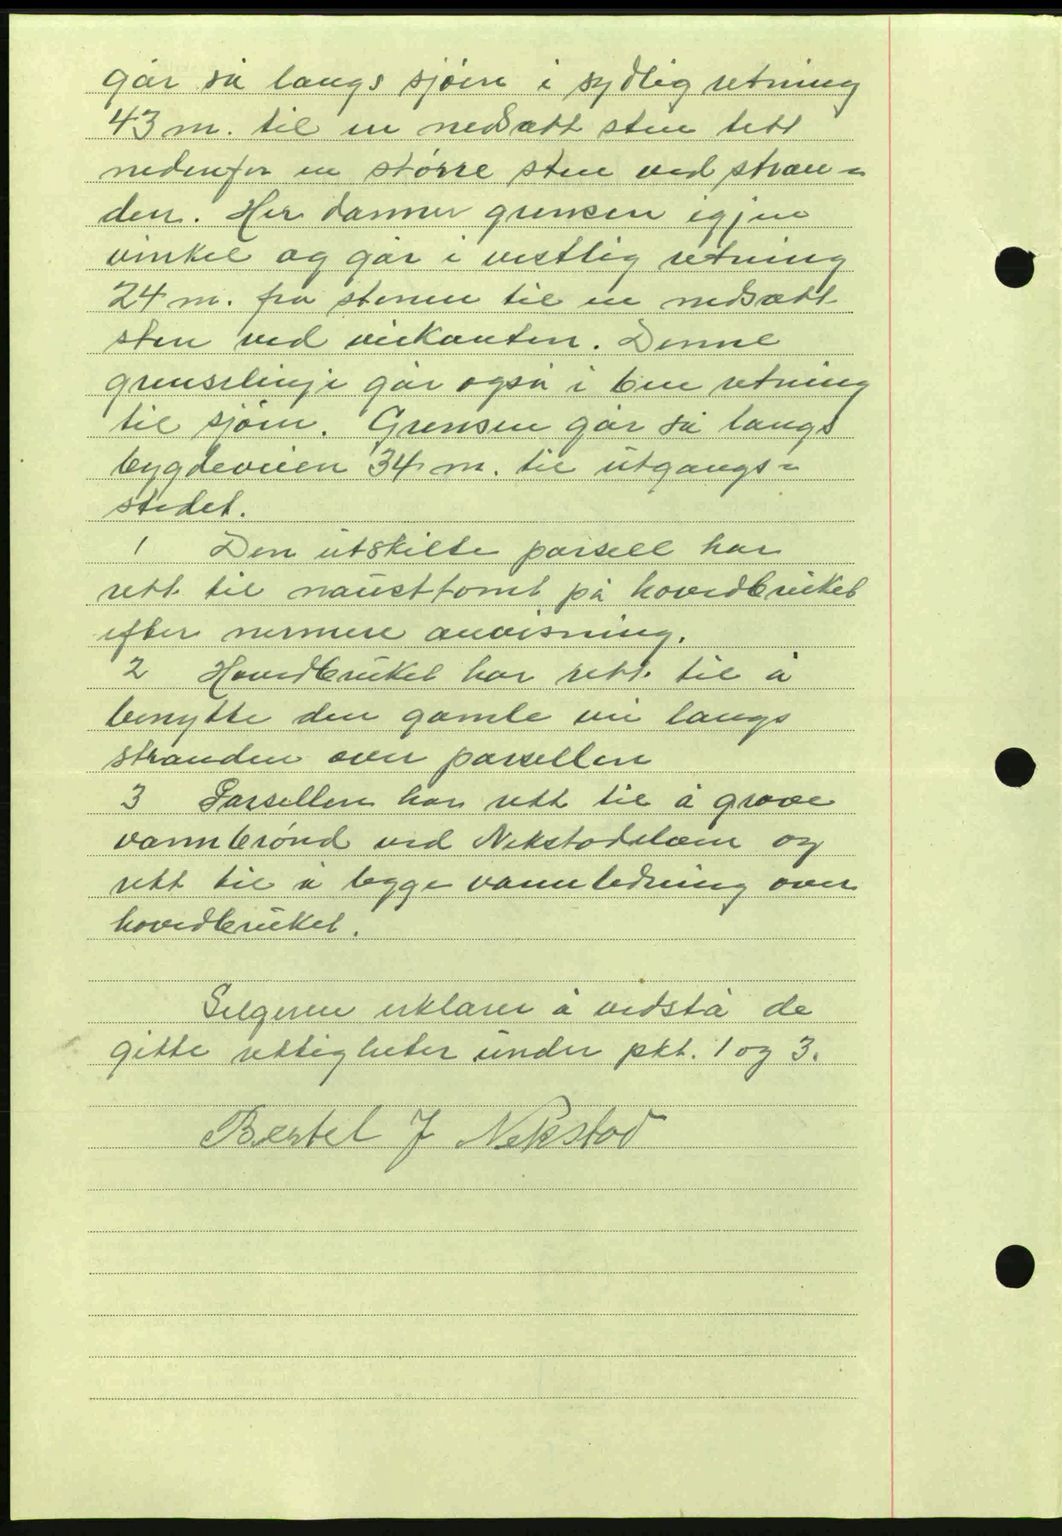 går så langs sjøen i sydlig retning
43 m. til en nedsatt sten tett
nedenfor en större sten ved stran=
den. Her danner grensen igjen
vinkel og går i vestlig retning
24 m. fra stenen til en nedsatt
sten ved veikanten. Denne
grenselinje går også i ben retning
til sjøen. Grensen går så langs
bygdeveien 34 m. til utgangs=
stedet.
1 Den utskilte parsell har
rett til nausttomt på hovedbruket
efter nermere anvisning.
2 Hovedbruket har rett til å
benytte den gamle vei langs
stranden over parsellen
3 Parsellen har rett til å grave
vannbrönd ved Nekstadelven og
rett til å legge vannledning over
hovedbruket.
Selgeren erklærer å vedstå de
gitte rettigheter under pkt. 1 og 3.
Bertel J Nekstad